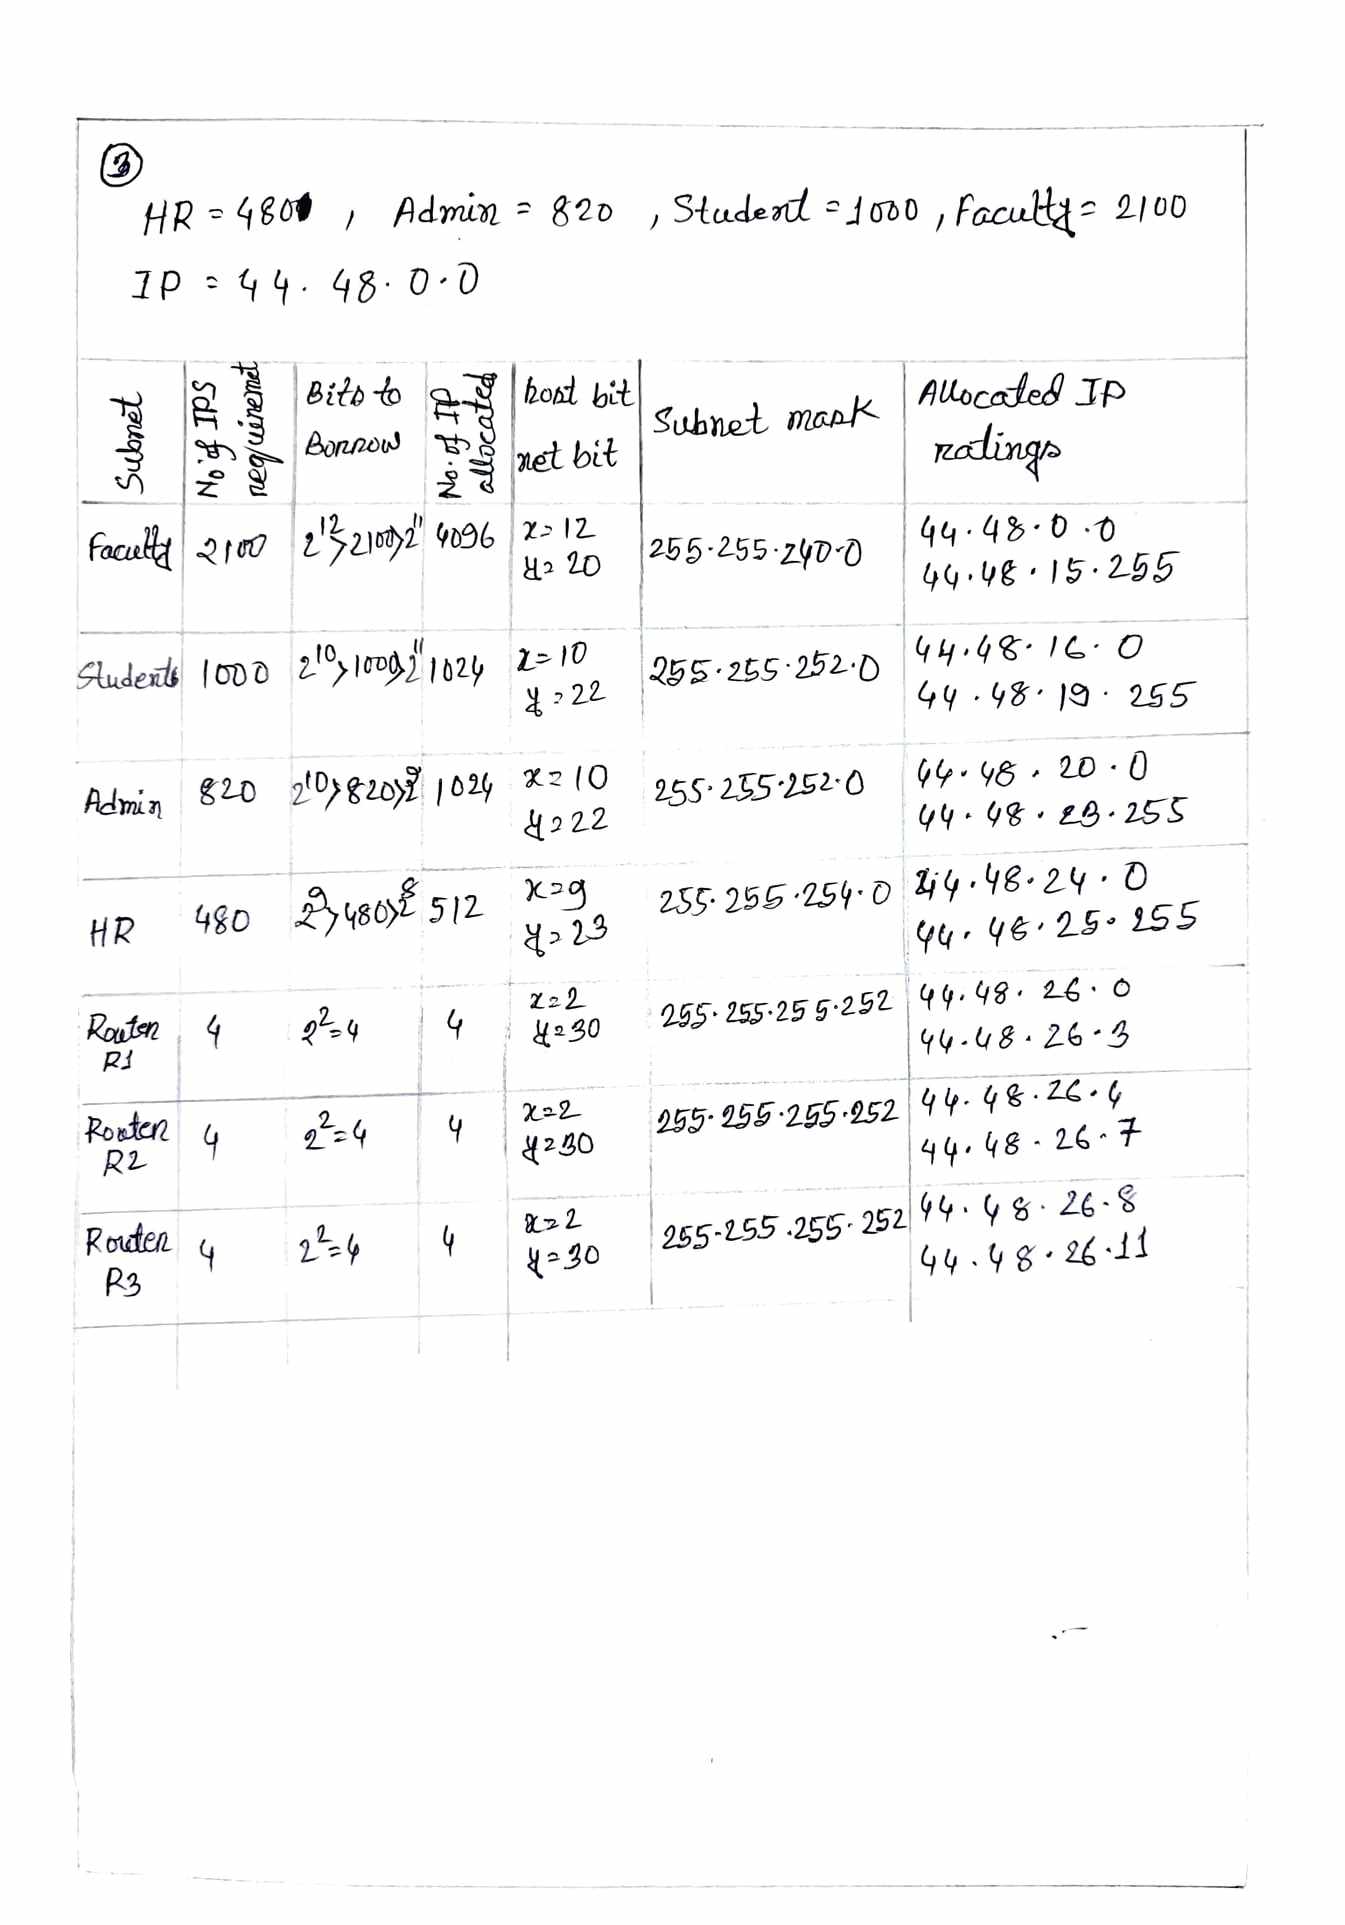 3
HR = 480 , Admin = 820 , Student = 1000 , Faculty = 2100
IP = 44.48.0.0
Subnet | No. of IPS requirement | Bits to Borrow | No. of IP allocated | host bit net bit | Subnet mask | Allocated IP ratings
Faculty | 2100 | 2^12 > 2100 > 2^11 | 4096 | x = 12 y = 20 | 255.255.240.0 | 44.48.0.0 44.48.15.255
Students | 1000 | 2^10 > 1000 > 2^11 | 1024 | x = 10 y = 22 | 255.255.252.0 | 44.48.16.0 44.48.19.255
Admin | 820 | 2^10 > 820 > 2^9 | 1024 | x = 10 y = 22 | 255.255.252.0 | 44.48.20.0 44.48.23.255
HR | 480 | 2^9 > 480 > 2^8 | 512 | x = 9 y = 23 | 255.255.254.0 | 44.48.24.0 44.48.25.255
Router R1 | 4 | 2^2 = 4 | 4 | x = 2 y = 30 | 255.255.255.252 | 44.48.26.0 44.48.26.3
Router R2 | 4 | 2^2 = 4 | 4 | x = 2 y = 30 | 255.255.255.252 | 44.48.26.4 44.48.26.7
Router R3 | 4 | 2^2 = 4 | 4 | x = 2 y = 30 | 255.255.255.252 | 44.48.26.8 44.48.26.11